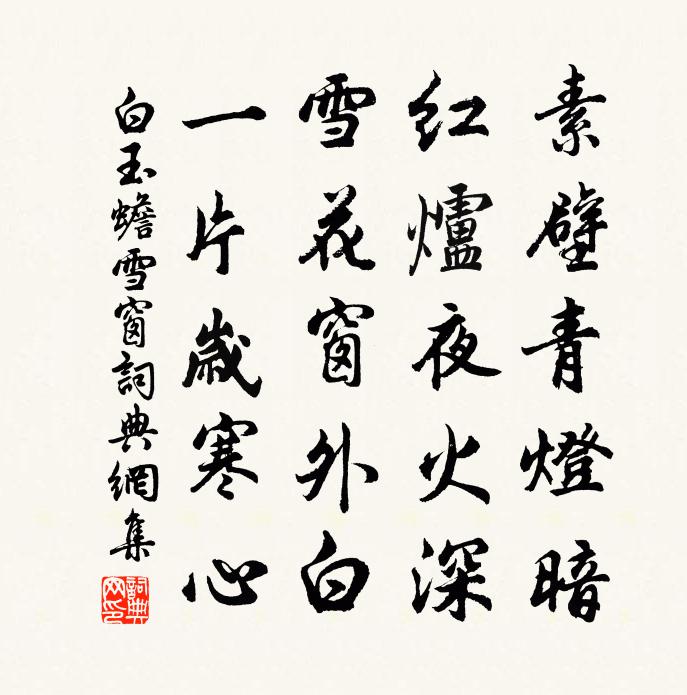 素壁青燈暗
紅爐夜火深
雪花窗外白
一片歲寒心
白玉蟾雪窗詞典網集
詞典網印